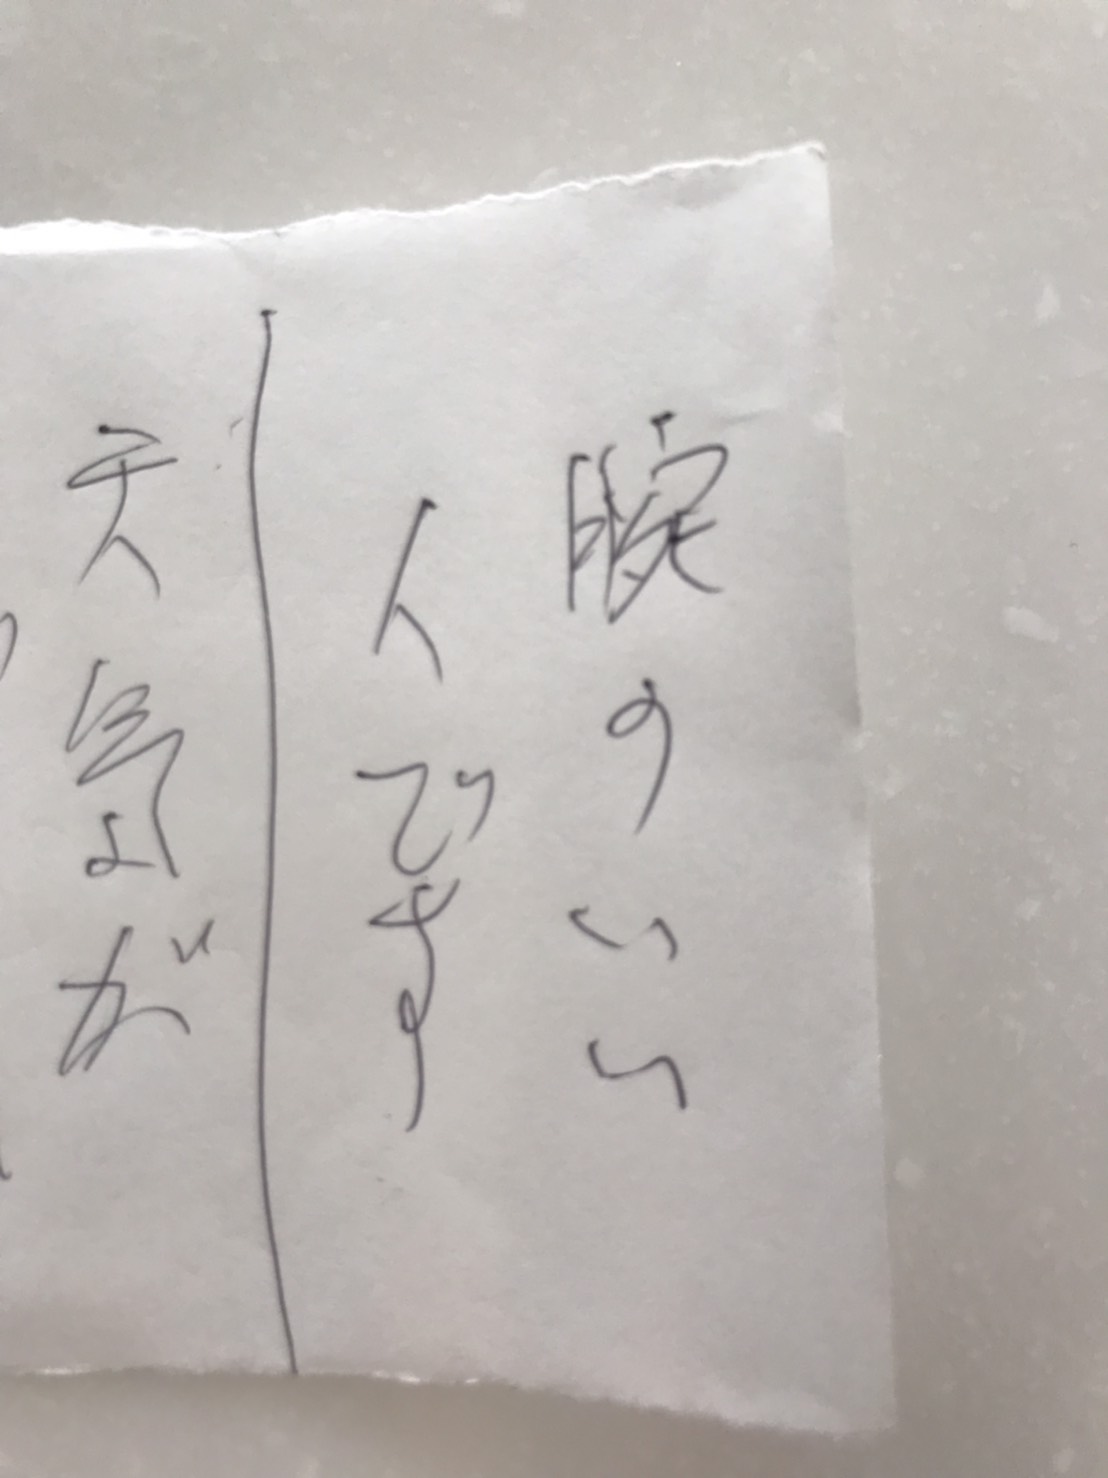 腕のいい
人です
天気が